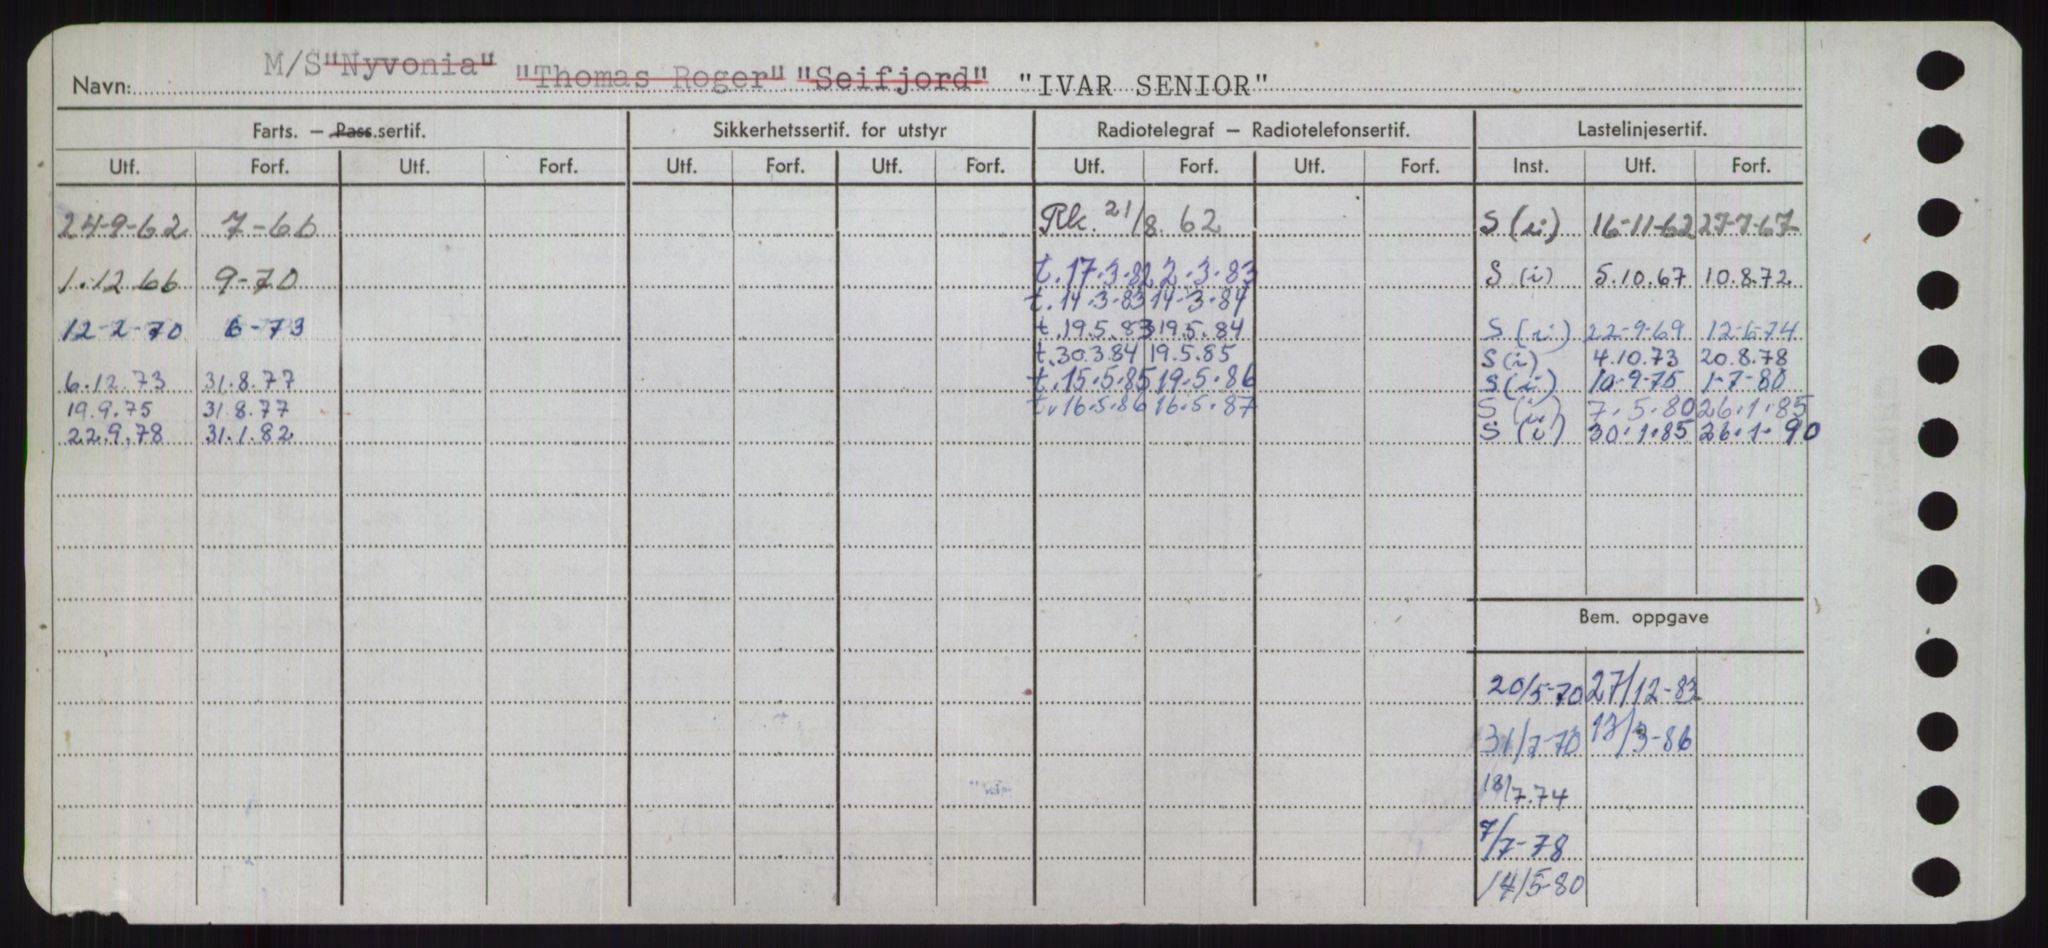 Navn: M/S "Nyvonia" "Thomas Roger" "Seifjord" "IVAR SENIOR"
Farts. — Pass.sertif. Sikkerhetssertif. for utstyr Radiotelegraf — Radiotelefonsertif. Lastelinjesertif.
Utf. Forf. Utf. Forf. Utf. Forf. Utf. Forf. Utf. Forf. Utf. Forf. Inst. Utf. Forf.
24-9-62 7-66 Rk. 21/8. 62 S (i) 16-11-62 27-7-67
1.12 66 9-70 t. 17.3.82 2.3.83 S (i) 5.10.67 10.8.72
t. 14.3.83 14-3-84
12-2-70 6-73 t. 19.5.83 19.5.84 S (i) 22-9-69 12-6-74
t. 30.3.84 19.5.85 S (i) 4.10.73 20.8.78
6.12.73 31.8.77 t. 15.5.85 19.5.86 S (i) 10-9-75 1-7-80
19.9.75 31.8.77 t. 16.5.86 16.5.87 S (i) 7.5.80 26.1.85
22.9.78 31.1.82 S (i) 30.1.85 26.1.90
Bem. oppgave
20/5-70 27/12-83
31/7-70 17/3-86
18/7.74
7/7-78
14/5-80